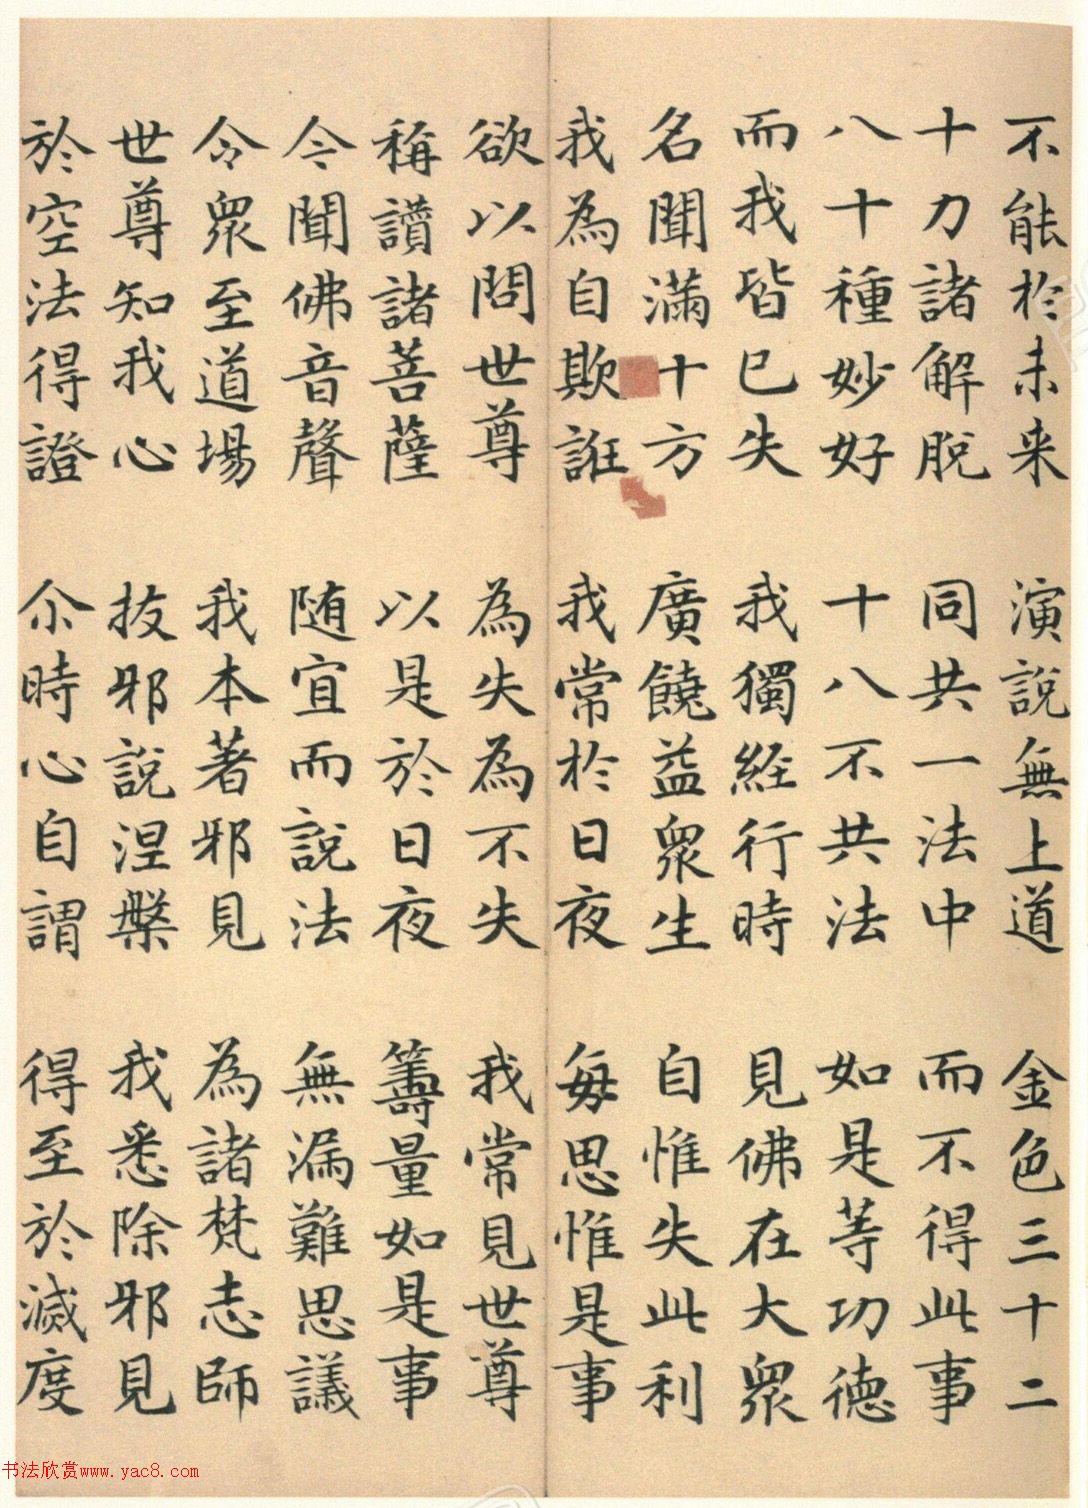 不能於未来 演說無上道 金色三十二
十力諸解脫 同共一法中 而不得此事
八十種妙好 十八不共法 如是等功德
而我皆已失 我獨經行時 見佛在大眾
名聞滿十方 廣饒益眾生 自惟失此利
我為自欺誑 我常於日夜 每思惟是事
欲以問世尊 為失為不失 我常見世尊
稱讚諸菩薩 以是於日夜 籌量如是事
今聞佛音聲 随宜而說法 無漏難思議
令眾至道場 我本著邪見 為諸梵志師
世尊知我心 拔邪說涅槃 我悉除邪見
於空法得證 尒時心自謂 得至於滅度
书法欣赏www.yac8.com